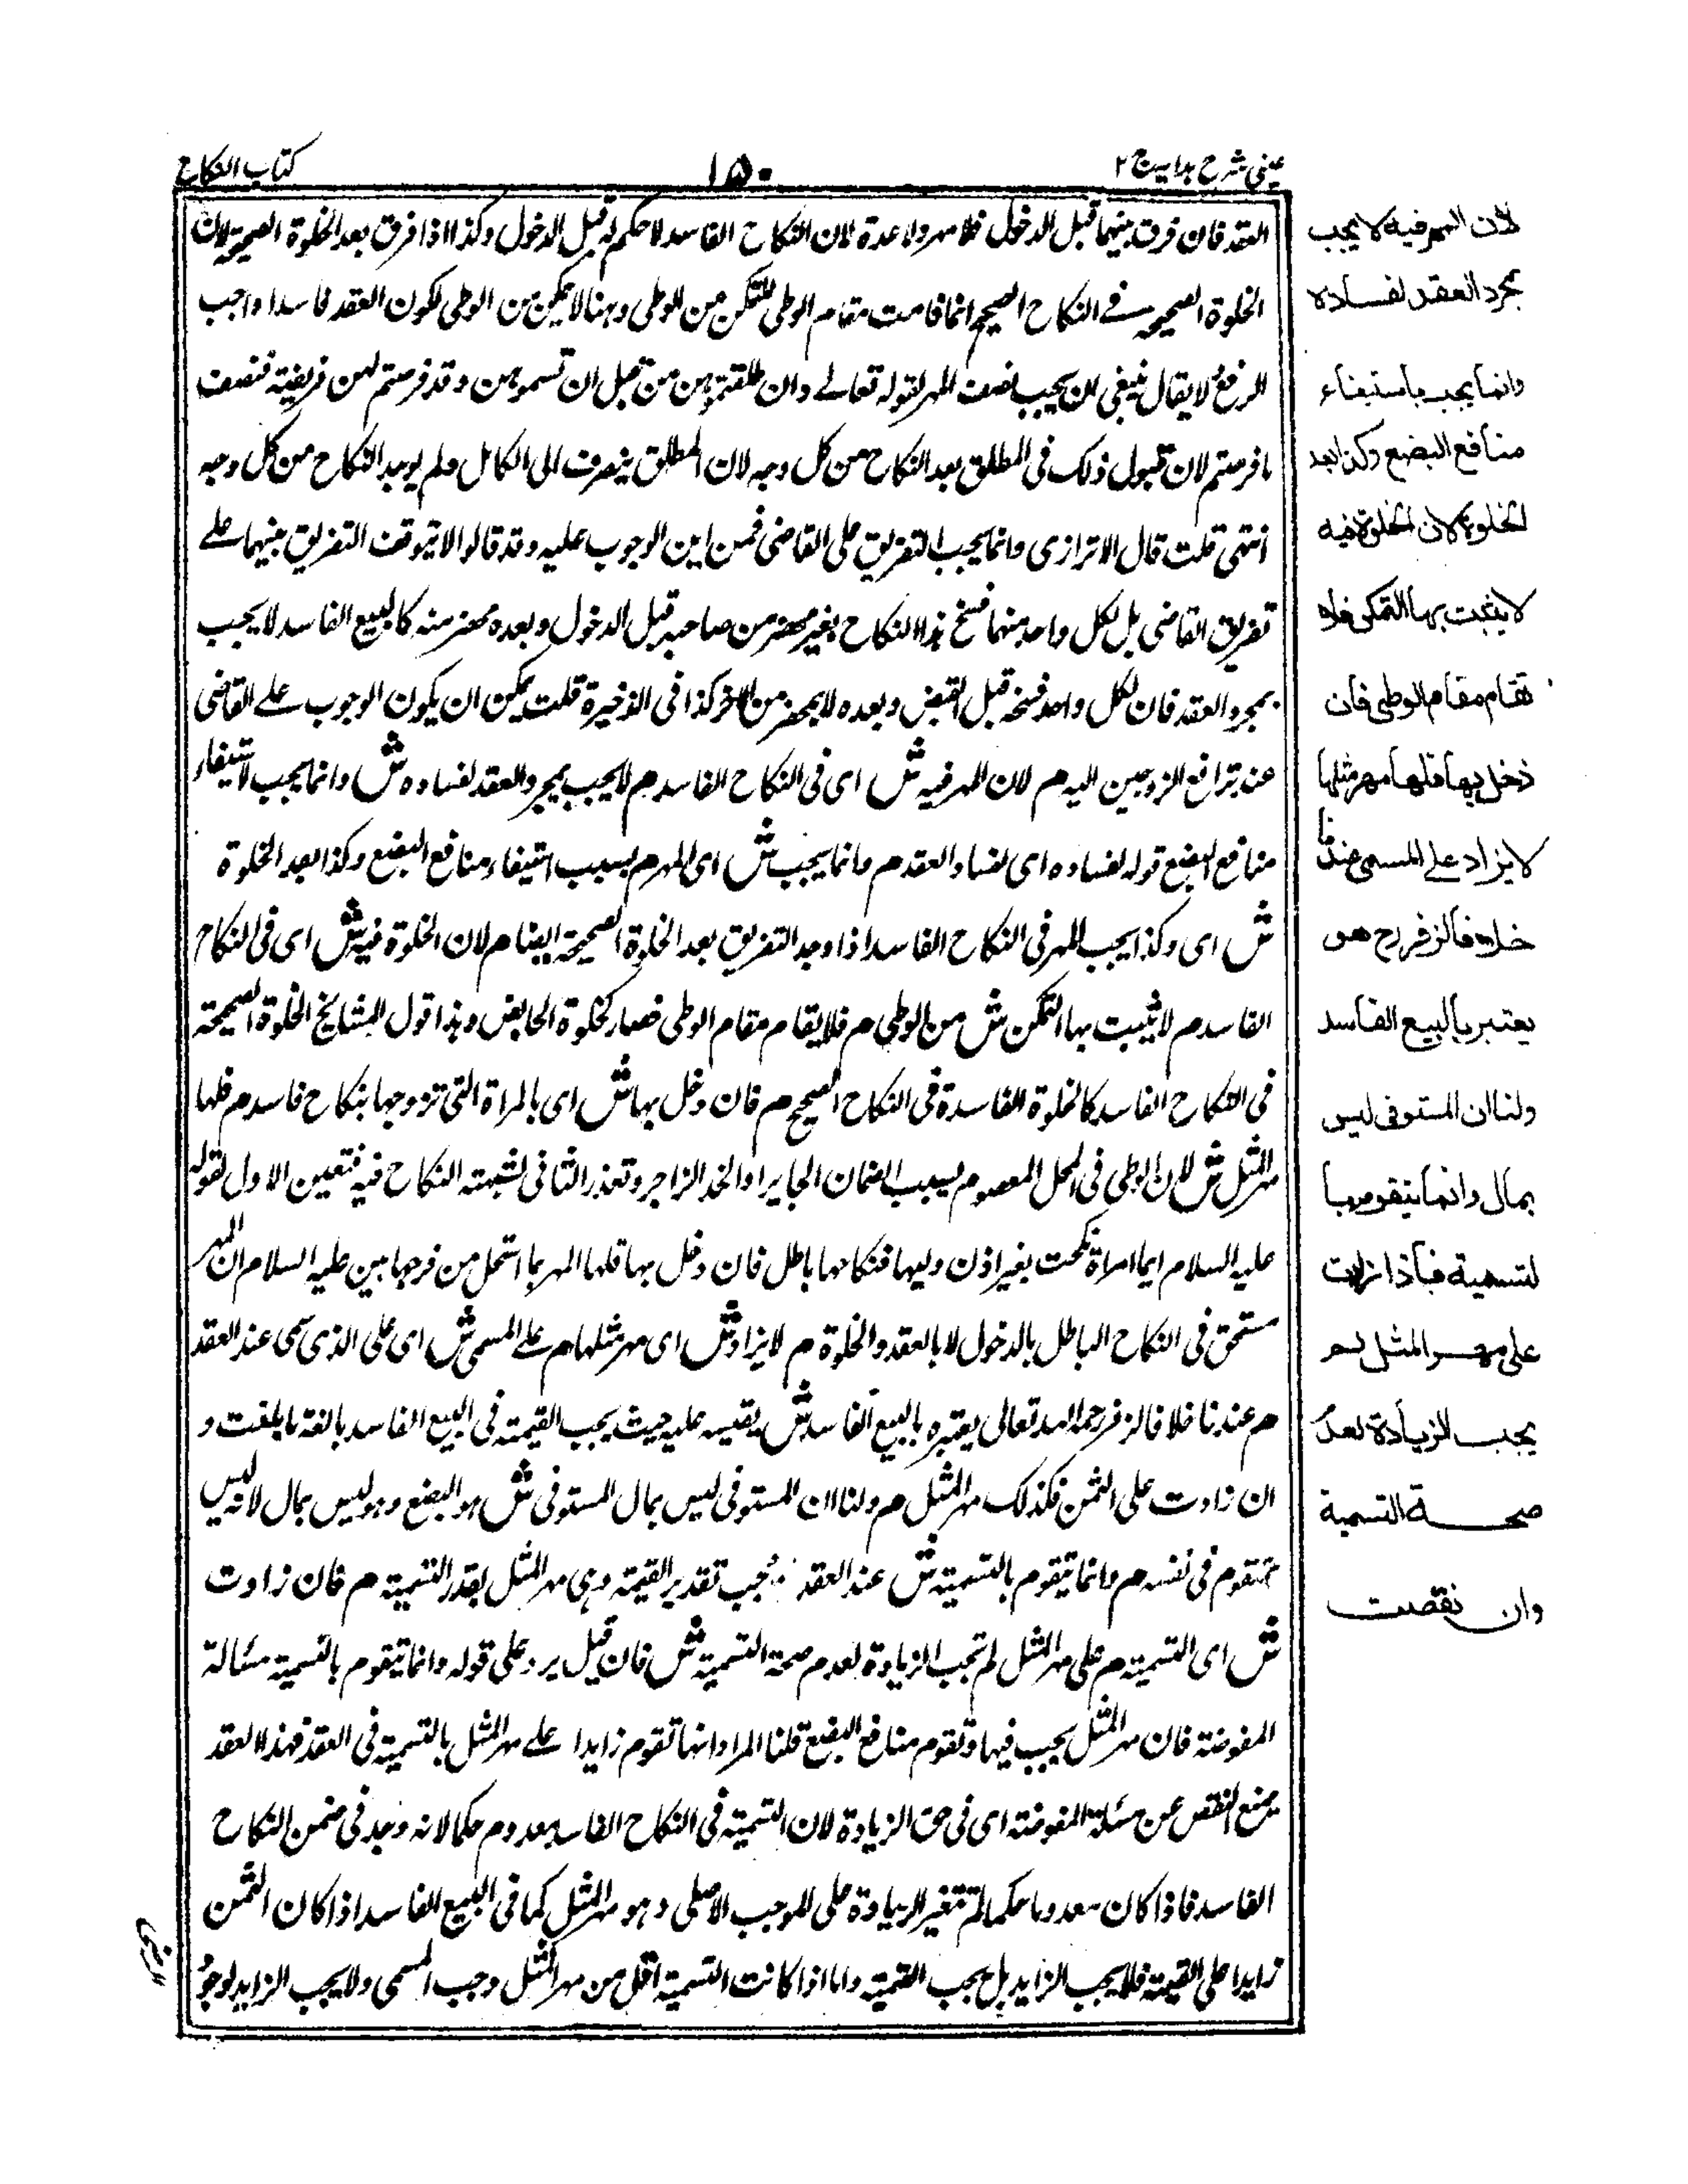 عینی شرح ہدایہ ج ۲
۱۵۰
کتاب النکاح
العقد فان فرق بینہما قبل الدخول فلا مہر ولا عدۃ لان النکاح الفاسد لا حکم لہ قبل الدخول وکذا اذا فرق بعد الخلوۃ الصحیحۃ لان
الخلوۃ الصحیحۃ فے النکاح الصحیح انما قامت مقام الوطی للتمکن من الوطی وہنا لا یمکن من الوطی لکون العقد فاسدا واجب
الرفع لا یقال ینبغی ان یجب نصف المہر لقولہ تعالے وان طلقتموہن من قبل ان تمسوہن وقد فرضتم لہن فریضۃ فنصف
ما فرضتم لان نقول ذلک فی المطلق بعد النکاح من کل وجہ لان المطلق ینصرف الی الکامل ولم یوجد النکاح من کل وجہ
انتہی قلت قال الاترازی وانما یجب التفریق علی القاضی فمن این الوجوب علیہ وقد قالوا لا یتوقف التفریق بینہما علے
تفریق القاضی بل لکل واحد منہما فسخ ہذا النکاح بغیر محضر من صاحبہ قبل الدخول وبعدہ محضر منہ کالبیع الفاسد لا یجب
بمجرد العقد فان لکل واحد فسخہ قبل القبض وبعدہ لا بمحضر من الآخر کذا فی الذخیرۃ قلت یمکن ان یکون الوجوب علے القاضی
عند ترافع الزوجین الیہ م لان المہر فیہ ش ای فی النکاح الفاسد م لا یجب بمجرد العقد لفسادہ ش وانما یجب لاستیفاء
منافع البضع قولہ لفسادہ ای لفساد العقد م وانما یجب ش ای المہر م بسبب استیفاء منافع البضع وکذا بعد الخلوۃ
ش ای وکذا یجب المہر فی النکاح الفاسد اذا وجد التفریق بعد الخلوۃ الصحیحۃ ایضا م لان الخلوۃ فیہ ش ای فی النکاح
الفاسد م لا یثبت بہا التمکن ش من الوطی م فلا یقام مقام الوطی فصار کخلوۃ الحایض وہذا قول المشایخ الخلوۃ الصحیحۃ
فی النکاح الفاسد کالخلوۃ الفاسدۃ فی النکاح الصحیح م فان دخل بہا ش ای بالمراۃ التی تزوجہا بنکاح فاسد م فلہا
مہر المثل ش لان الوطی فی المحل المعصوم بسبب الضمان الجابر او الحد الزاجر وتعذر الثانی لشبہتہ النکاح فیہ فتعین الاول لقولہ
علیہ السلام ایما امراۃ نکحت بغیر اذن ولیہا فنکاحہا باطل فان دخل بہا فلہا المہر بما استحل من فرجہا بین علیہ السلام ان المہر
مستحق فی النکاح الباطل بالدخول لا بالعقد والخلوۃ م لا یزاد ش ای مہر مثلہا م علے المسمی ش ای علی الذی سمی عند العقد
م عندنا خلافا لزفر رحمہ اللہ تعالی یعتبرہ بالبیع الفاسد ش یقیسہ علیہ حیث یجب القیمۃ فی البیع الفاسد بالغۃ ما بلغت و
ان زادت علی الثمن فکذلک مہر المثل م ولنا ان المستوفی لیس بمال المستوفی ش ہو البضع وہو لیس بمال لانہ لیس
بمتقوم فی نفسہ م وانما یتقوم بالتسمیۃ ش عند العقد فیجب تقدیر القیمۃ وہی مہر المثل بقدر التسمیۃ م فان زادت
ش ای التسمیۃ م علی مہر المثل لم تجب الزیادۃ لعدم صحۃ التسمیۃ ش فان قیل یرد علی قولہ وانما یتقوم بالتسمیۃ مسألۃ
المفوضۃ فان مہر المثل یجب فیہا وتقوم منافع البضع قلنا المراد انہا تقوم زایدا علے مہر المثل بالتسمیۃ فی العقد فہذا العقد
یمنع النقض عن مسئلۃ المفوضۃ ای فی حق الزیادۃ لان التسمیۃ فی النکاح الفاسد معدوم حکما لانہ وجد فی ضمن النکاح
الفاسد فاذا کان معدوما حکما لم تتغیر الزیادۃ علی الموجب الاصلی وہو مہر المثل کما فی البیع الفاسد اذا کان الثمن
زایدا علی القیمۃ فلا یجب الزاید بل یجب القیمۃ واما اذا کانت التسمیۃ اقل من مہر المثل وجب المسمی ولا یجب الزاید لوجود
لان المہر فیہ لا یجب
بمجرد العقد لفسادہ
وانما یجب باستیفاء
منافع البضع وکذا بعد
الخلوۃ لان الخلوۃ فیہ
لا یثبت بہا التمکن فلا
تقام مقام الوطی فان
دخل بہا فلہا مہر مثلہا
لا یزاد علے المسمی عندنا
خلافا لزفر رح ھو
یعتبر بالبیع الفاسد
ولنا ان المستوفی لیس
بمال وانما یتقوم با
لتسمیۃ فاذا زادت
علی مہر المثل لم
یجب الزیادۃ لعدم
صحۃ التسمیۃ
وان نقصت